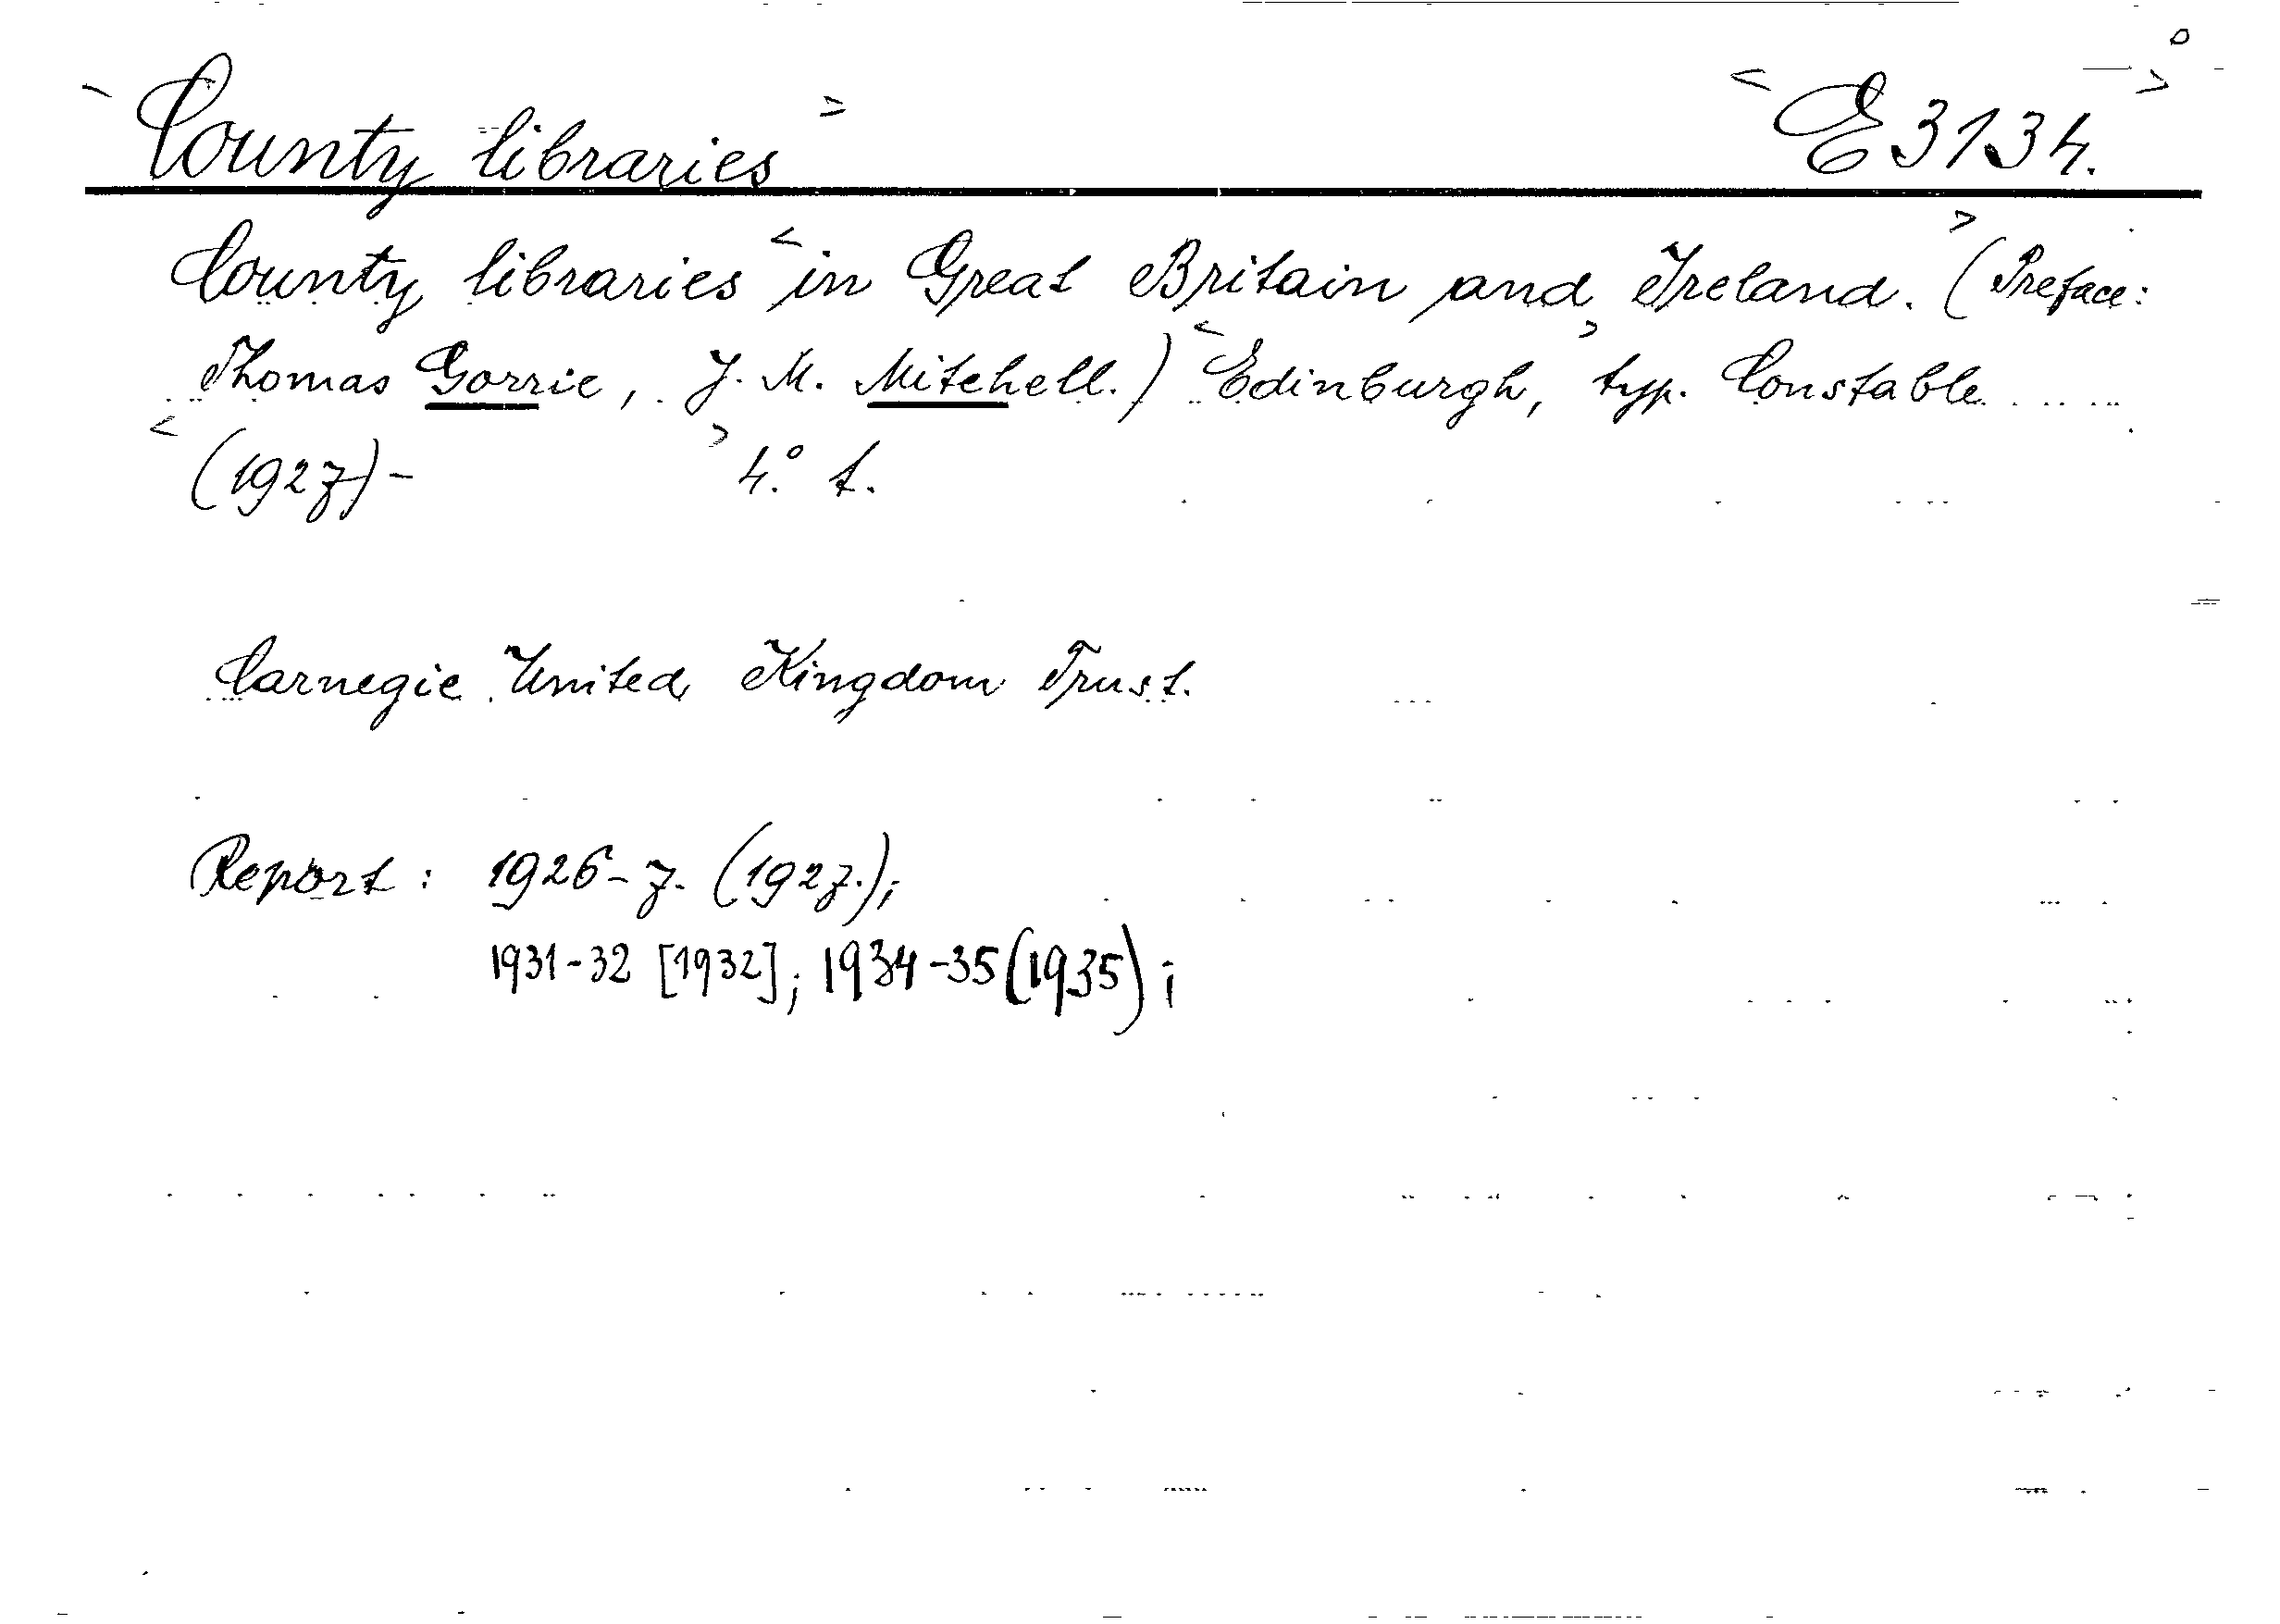 County libraries E 3134.
County libraries in Great Britain and Ireland. (Preface:
Thomas Gorrie, J. M. Mitchell.) Edinburgh, typ. Constable
(1927)- 4.° t.
Carnegie United Kingdom Trust.
Report: 1926-7. (1927.);
1931-32 [1932]; 1934-35 (1935);